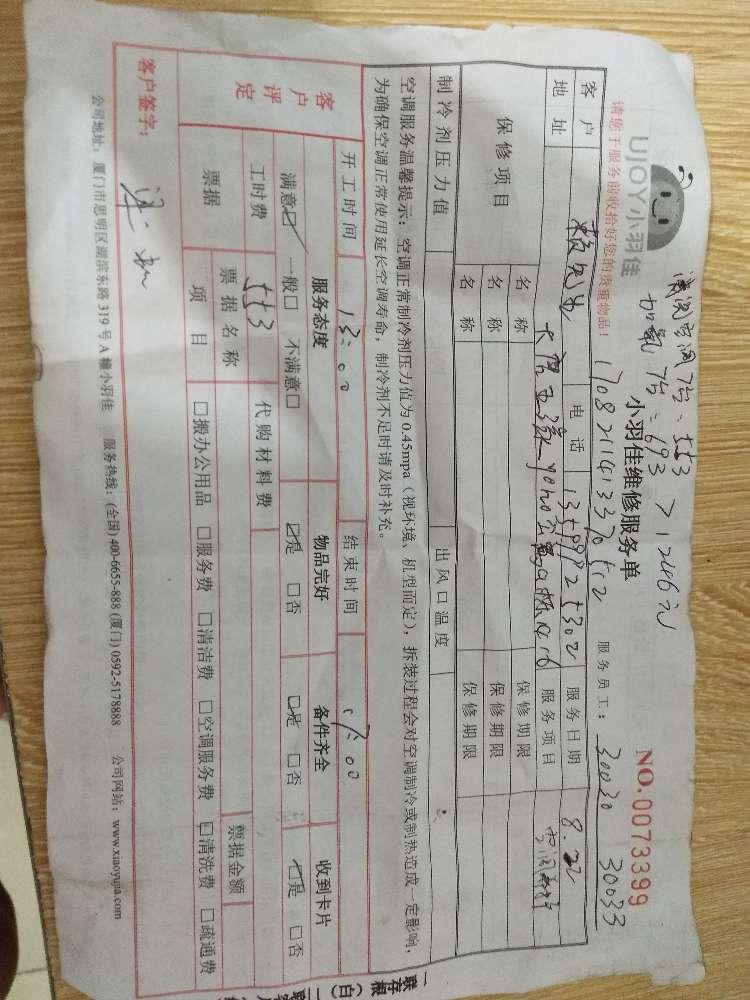 UJOY小羽佳
清洗空调7台:553
加氧7台:693 >1246元
请您于服务前收拾好您的贵重物品!
小羽佳维修服务单
NO.0073399
服务员工: 30030 30033
客户 赖先生 电话 服务日期 8.22
地址 服务项目
保修项目 名称 保修期限
名称 保修期限
名称 保修期限
制冷剂压力值 出风口温度
空调服务温馨提示: 空调正常制冷剂压力值为0.45mpa(视环境、机型而定), 拆装过程会对空调制冷或制热造成一定影响,
为确保空调正常使用延长空调寿命, 制冷剂不足时请及时补充。
开工时间 13:00 结束时间 17:00
客户评定 服务态度 物品完好 备件齐全 收到卡片
满意☑ 一般□ 不满意□ ☑是 □否 ☑是 □否 ☑是 □否
工时费 553 代购材料费
票据 票据名称 票据金额
项目 □搬办公用品 □服务费 □清洁费 □空调服务费 ☑清洗费 □疏通费
客户签字:
公司地址: 厦门市思明区湖滨东路319号A幢小羽佳 服务热线: (全国) 400-6655-888 (厦门) 0592-5178888 公司网站: www.xiaoyujia.com